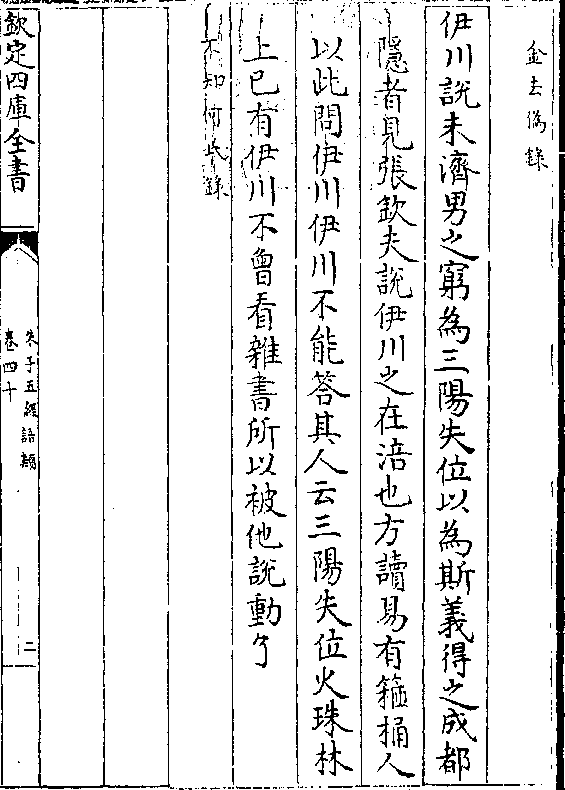 金去偽錄
伊川說未濟男之窮為三陽失位以為斯義得之成都
隱者見張欽夫說伊川之在涪也方讀易有箍桶人
以此問伊川伊川不能答其人云三陽失位火珠林
上已有伊川不曾看雜書所以被他說動了
不知何氏錄
欽定四庫全書
朱子五經語類
卷四十
二